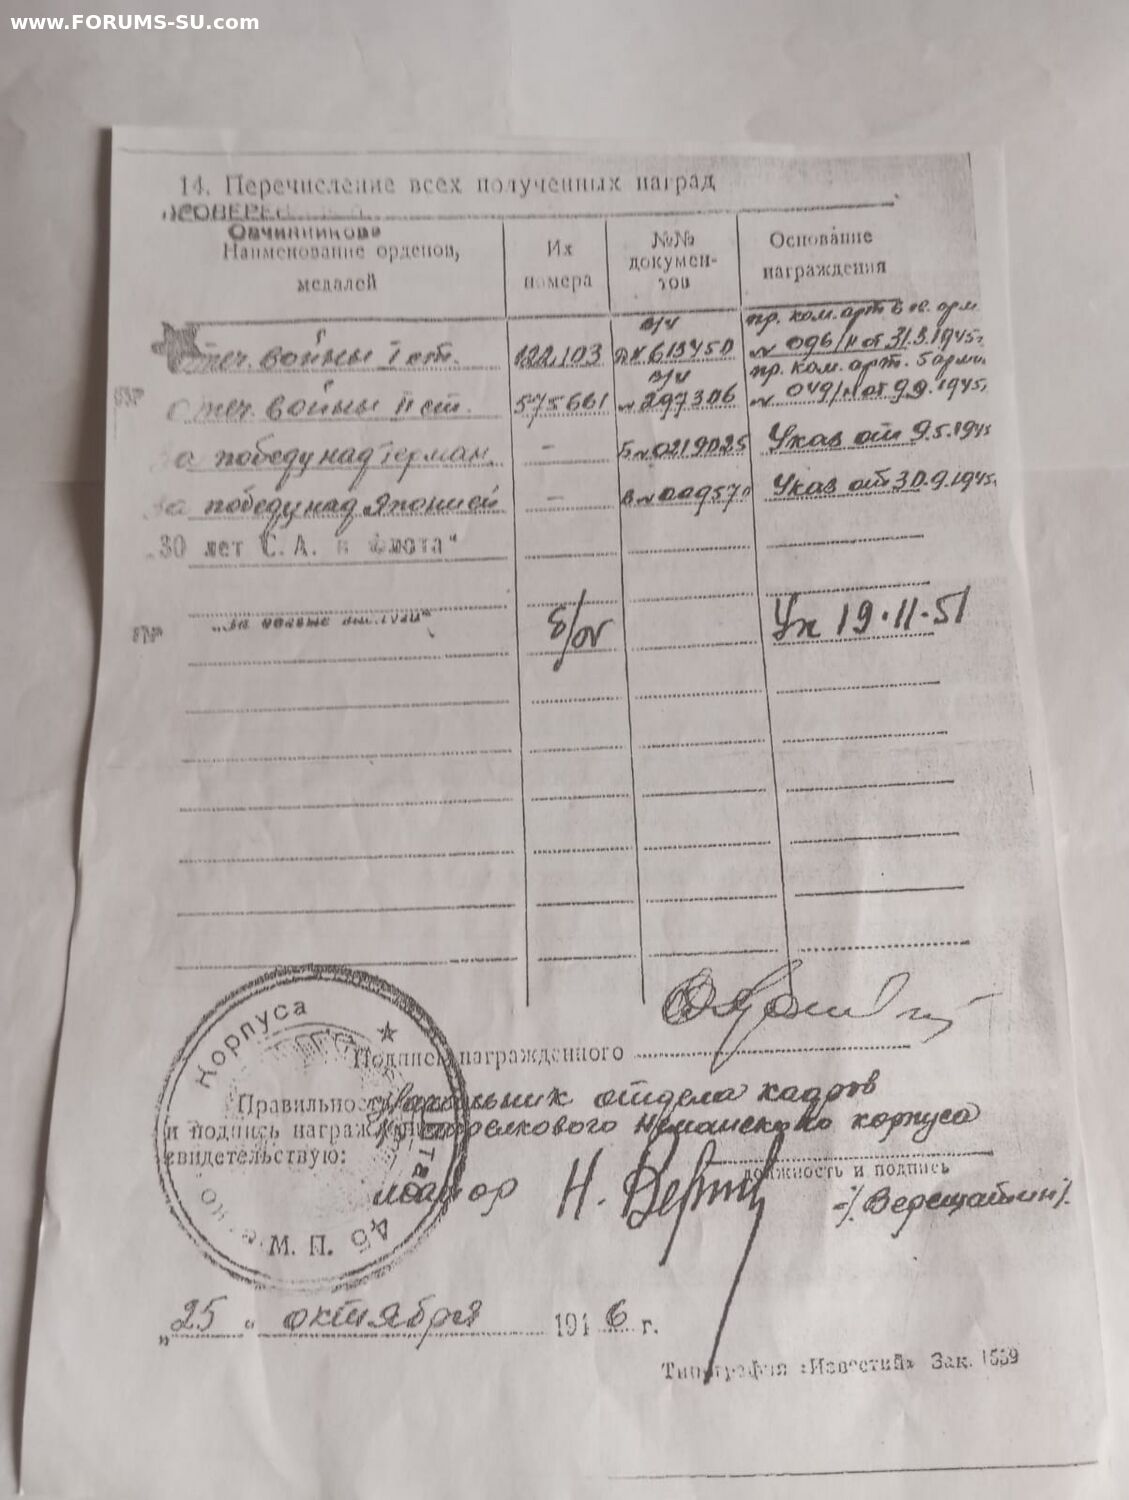 www.FORUMS-SU.com
14. Перечисление всех полученных наград
ПРОВЕРЕН
Овчинников
Наименование орденов, медалей
Их номера
№№ документов
Основание награждения
Отеч. войны I ст. 122103 613450 пр. ком. арт 6 гв. арм № 096/н от 31.3.1945г.
Отеч. войны II ст. 575661 № 297306 пр. ком. арт. 5 арми № 049/н от 9.9.1945г.
За победу над Герман. - Б № 0219025 Указ от 9.5.1945
За победу над Японией - В № 009570 Указ от 30.9.1945г.
„30 лет С. А. и Флота"
„За боевые заслуги" б/№ Ук 19.11.51
Подпись награжденного
Правильность
и подпись награжд
свидетельствую:
Начальник отдела кадров
стрелкового Неманского корпуса
должность и подпись
майор
Н. Вер
-/Верещагин/
Корпуса
45
М. П.
„25" октября 1946 г.
Типография «Известий» Зак. 1559